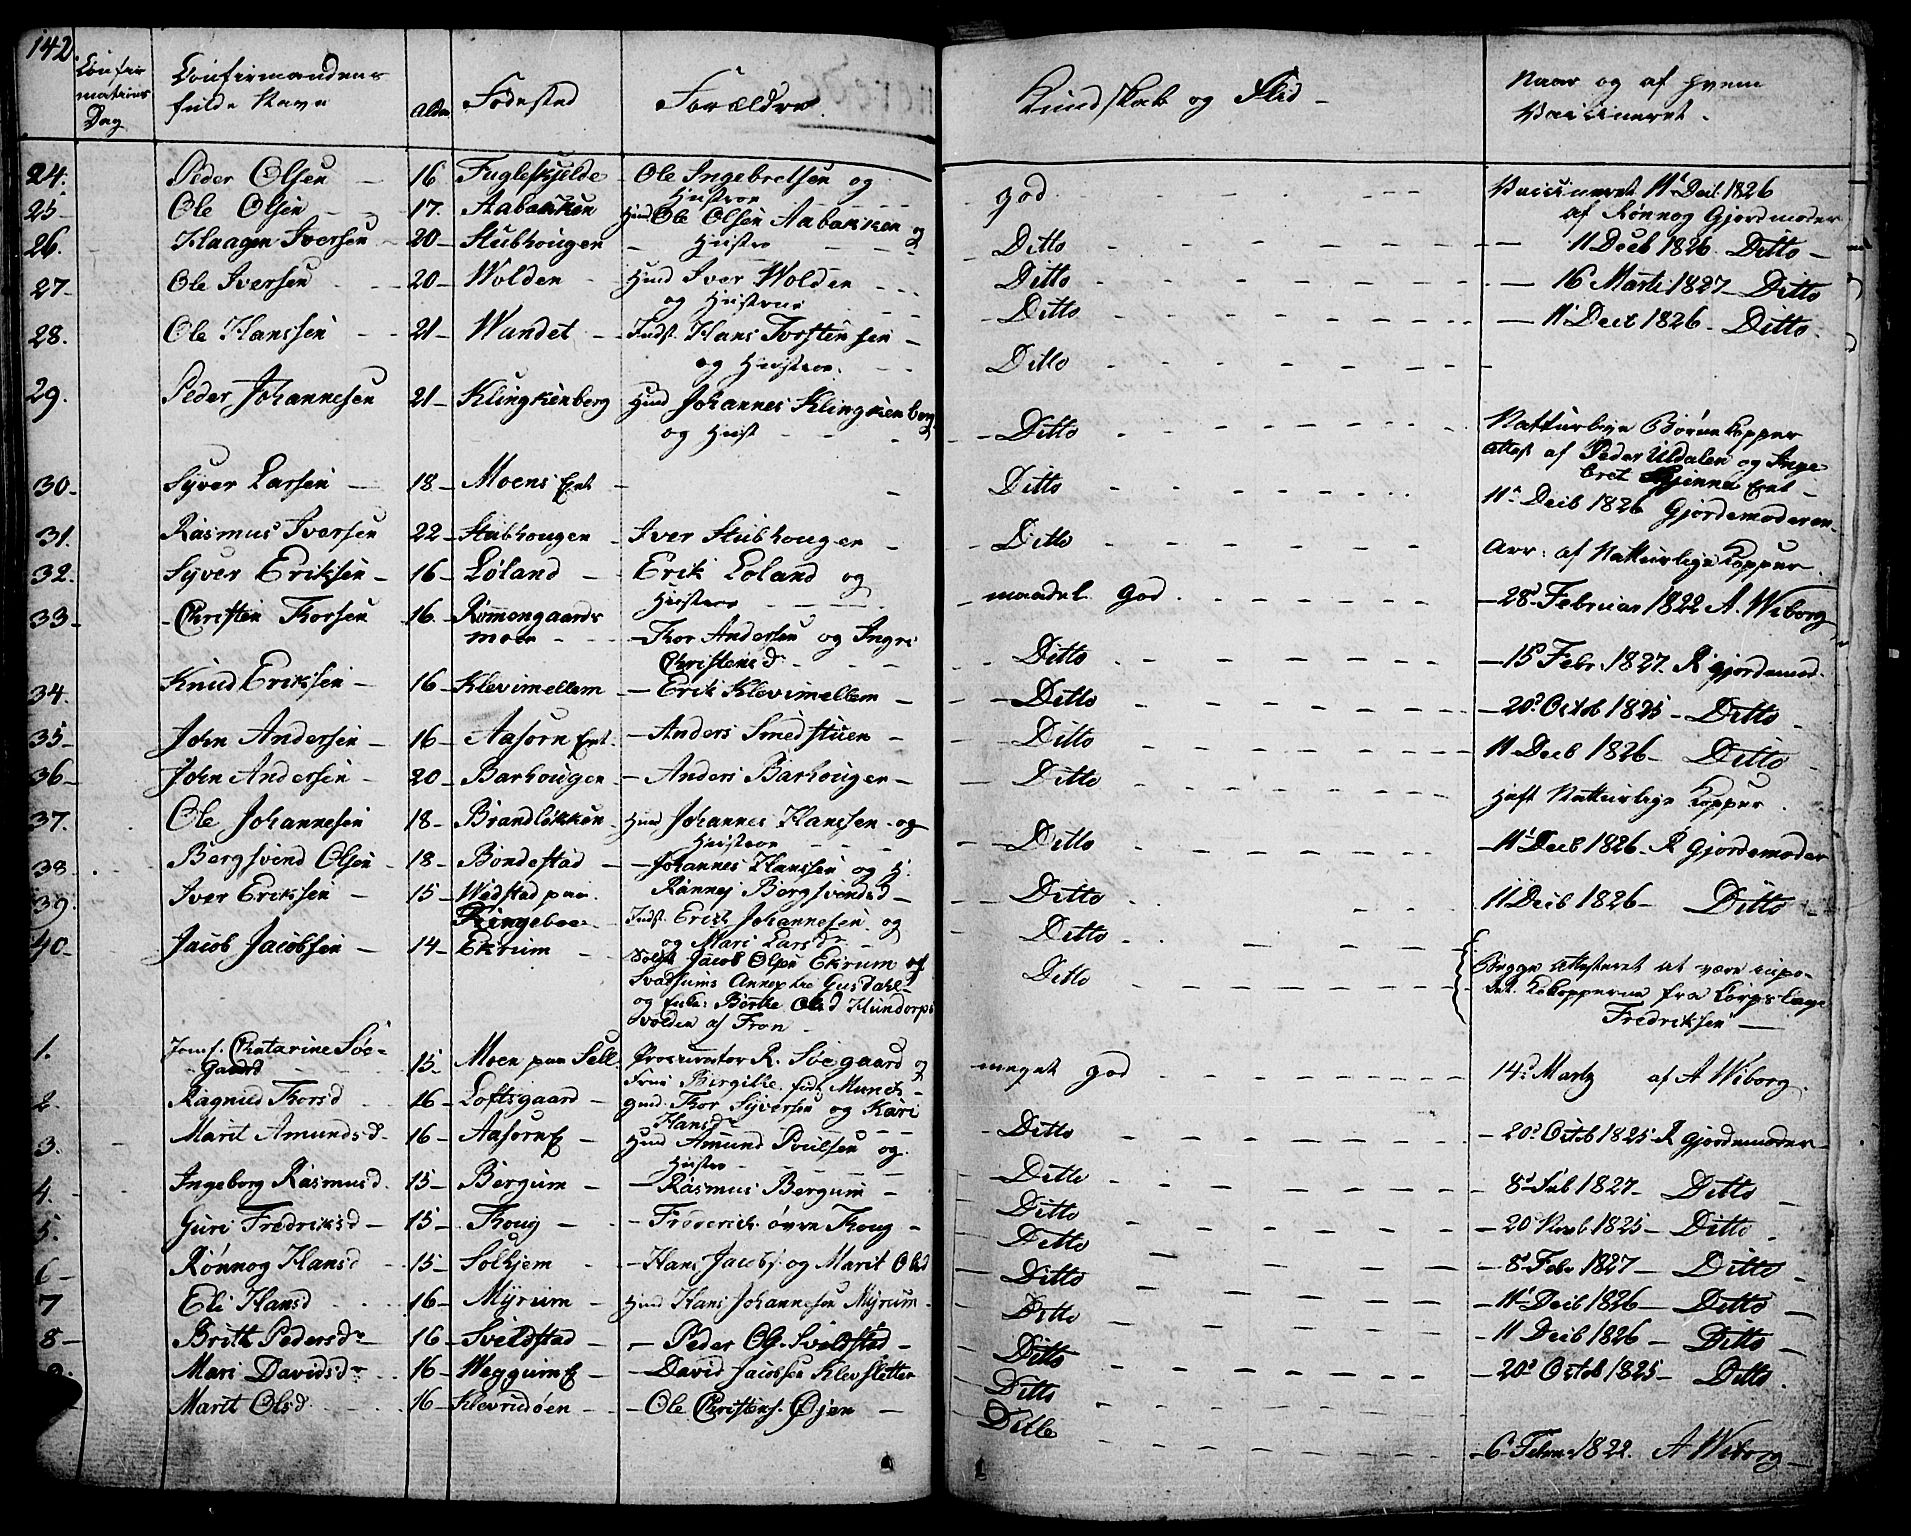 142.
Confir
mations
Dag
Confirmandens
fulde Navn
Alder
Fødested
Forældre.
Kundskab og Flid -
Naar og af hvem
Vaccineret.
24. Peder Olsen - 16 Fugleskjelde - Ole Ingebretsen og
Hustroe
god
Vaccineret 11te Decb 1826
af Rønnog Gjordmoder
25 Ole Olsen - 17. Aabakken Huusd Ole Olsen Aabakken og
Hustro
Ditto
11 Decb 1826 Ditto -
26. Haagen Iversen 20 - Stubhougen
27 - Ole Iversen 20 - Wolden - Huusd Iver Wolden
og Hustrue
Ditto
16 Marti 1827 - Ditto
28. Ole Hanssen 21 - Wandet - Indst. Hans Torstensen -
og Hustroe.
Ditto
11 Decb 1826 - Ditto
Ditto
29. Peder Johannesen 21 - Klingkenberg Huusd Johannes Klingkenberg
og Hust
Ditto
Natturlige Børnekopper
attest af Peder Uldalen og Inge-
bret
30 - Syver Larsen - 18 - Moens Ent
Ditto
11te Decb 1826 Gjordemoderen -
31. Rasmus Iversen 22 - Stubhougen - Iver Stubhougen -
Ditto
Arr: af Natturlige Kopper.
32. Syver Eriksen - 16 - Løland - Erik Loland og
Hustroe
maadel. God.
- 28de Februar 1822 A. Wiborg
33 - Christen Thorsen 16 Rommongaards
moen - Thor Andersen og Ingri
Christensd
Ditto
- 15 Febr. 1827. R gjordemod.
34. Knud Eriksen - 16 - Klevimellem - Erik Klevimellem -
Ditto
- 20de Octob 1825 - Ditto
35 - John Andersen - 16 - Aasorn Ent. - Anders Smedstuen -
Ditto
11 Decb 1826 - Ditto
36 - John Andersen - 20 - Barhougen - Anders Barhougen -
Ditto
Haft Natturlige Kopper.
37. Ole Johannesen 18 - Brandløkken Huusd Johannes Hanssen og
Hustroe
Ditto
- 11te Decb 1826. R gjordemoder
38 Bergsvend Olsen - 18 - Bondestad - - Johannes Hanssen og H.
Rønnej Bergsvendsd -
Ditto
11 Decb 1826 - Ditto
39. Iver Eriksen - 15 Wedstad paa
Ringeboe - Indst. Erich Johannesen og
og Mari Larsdr
Ditto
40 - Jacob Jacobsen - 14 - Ekrum - Soldt Jacob Olsen Ekrum af
Svadsums Annex Gusdahl -
og Bertte Olsd Hundorps
volden af Fron -
Ditto
Begge attesteret at være
Kokopperne fra
Fredriksen -
1. Jomf. Chatarine Søe-
Gaard 15. Moen paa Sell Procurator R. Søegaard og
Frue Bergitte, født Munch -
meget god
14de Martz af A Wiborg.
2 Ragnild Thorsd 16 - Loftsgaard - gmd. Thor Syversen og Kari
Hansdr
Ditto
- 20de Octb 1825 R gjordemoder -
3. Marit Amundsd - 16 - Aasorn E - Huusd Amund Poulsen og
Hustro
Ditto
8de Feb 1827 - Ditto
4. Ingeborg Rasmusd. 15 - Bergum - - Rasmus Bergum -
Ditto
- 20 Novb 1825 - Ditto
5. Guri Fredriksd - 15 - Thoug - - Frederich øvre Thoug -
Ditto
- 8de Febr 1827 - Ditto
6 - Rønnog Hansd 15 - Solhjem - Hans Jacobs. og Marit Olsd
Ditto
- 11te Decb 1826 - Ditto
7 Eli Hansd 16 - Myrum - Huusd Hans Johannesen Myrum
Ditto
- 11 Decb 1826 - Ditto
8 - Britt Pedersdr 16 - Sveldstad - - Peder Ol. Sveldstad -
Ditto
- 20de Octob 1825 - Ditto
Mari Davidsdr 16 - Weggum E - David Jacobsen Klevsletter
Ditto
Marit Olsd. 16 - Klevrudøen - - Ole Christens. Øjen -
Ditto
6te Febr. 1822. A Wiborg -